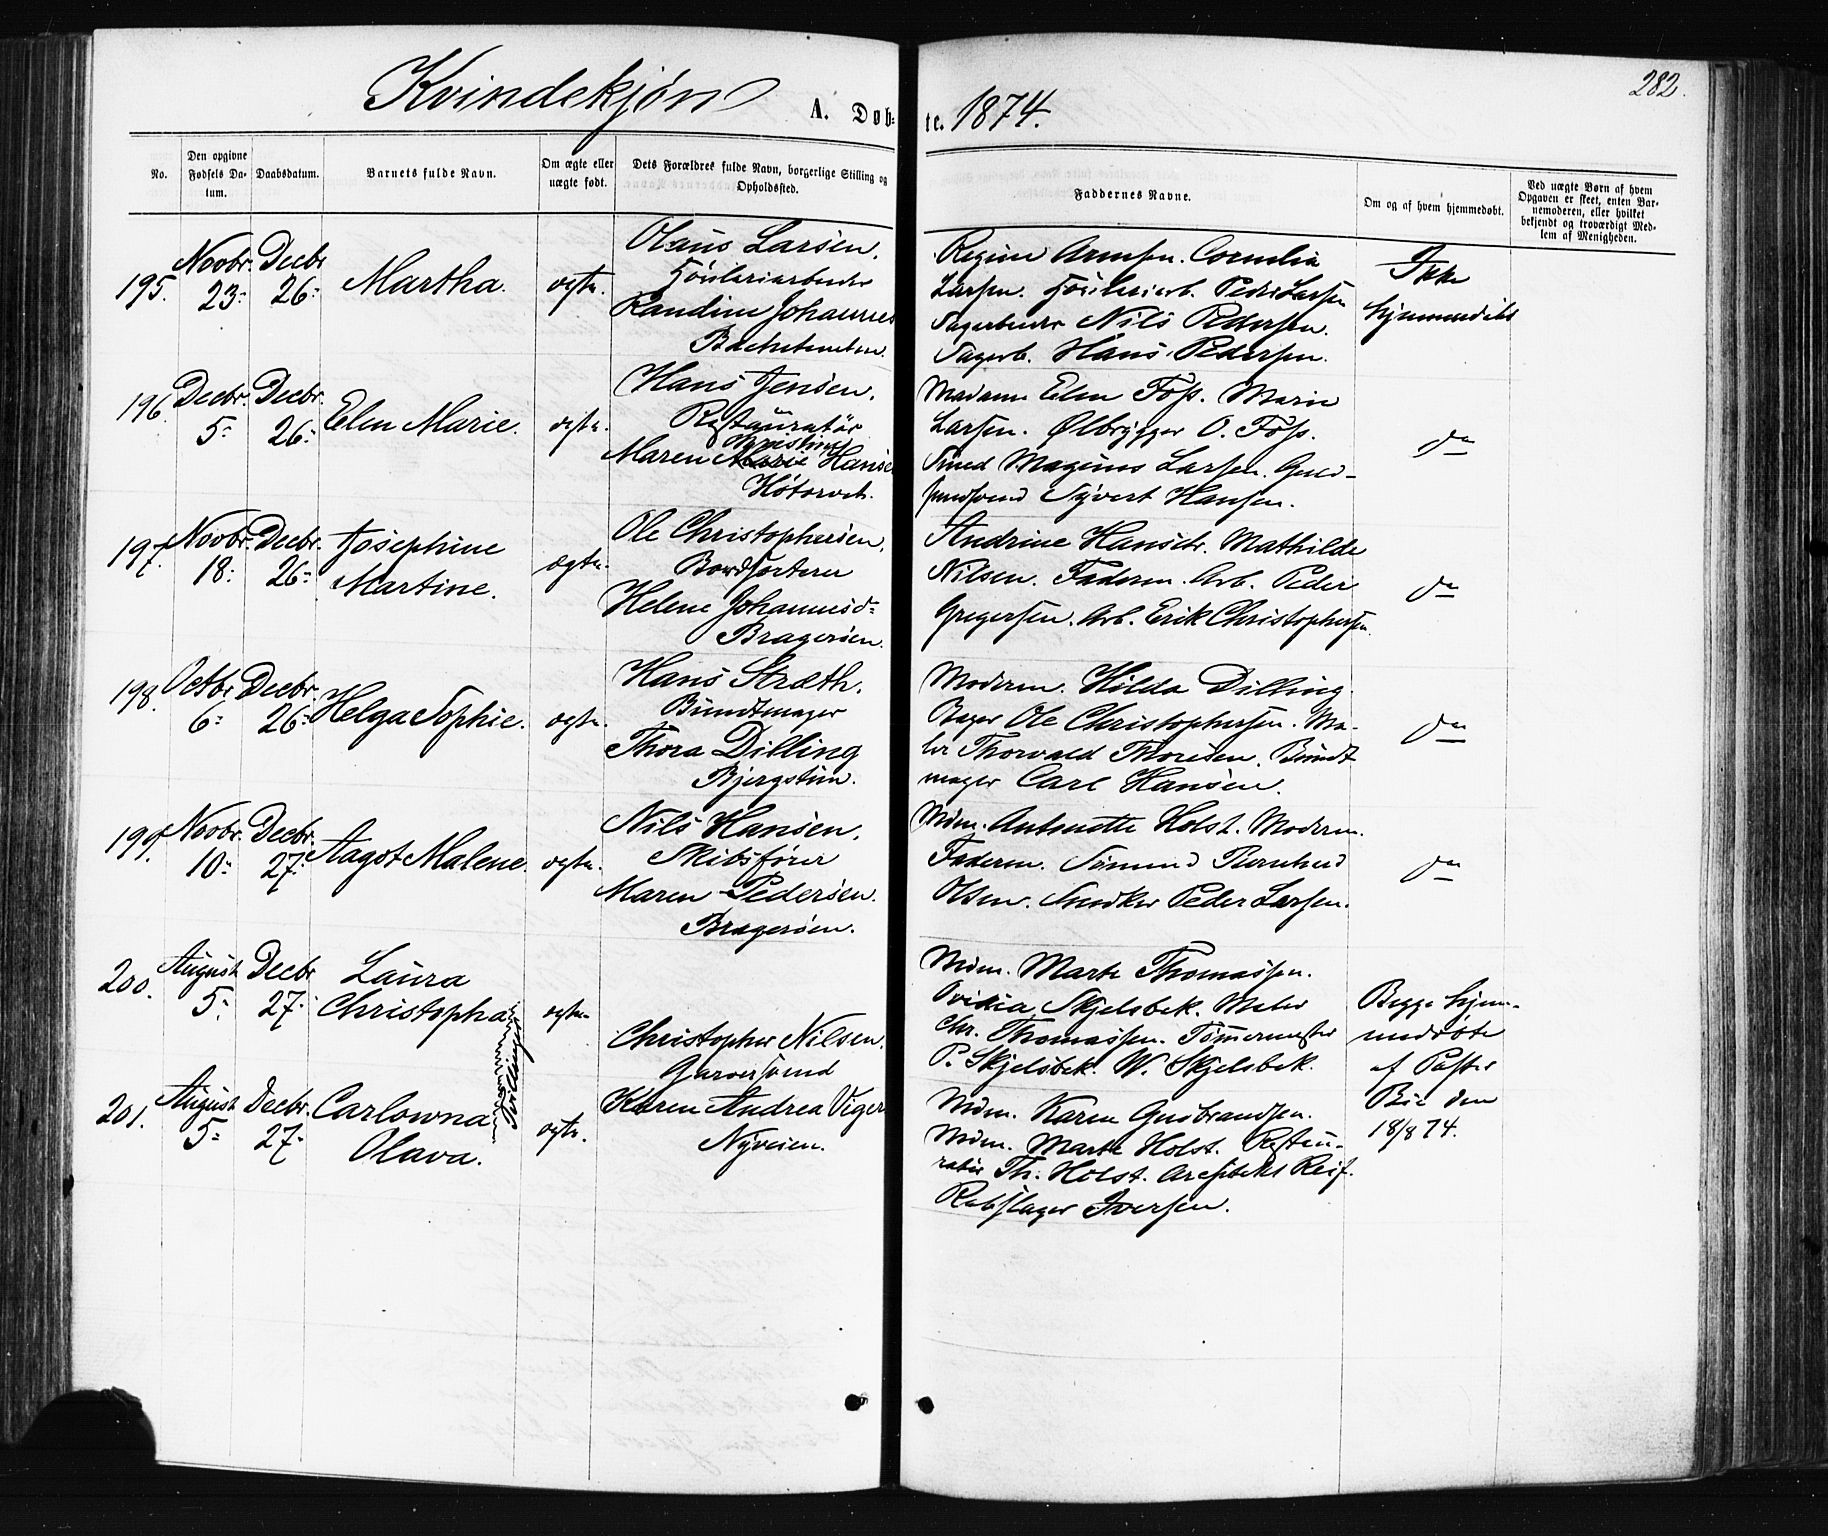 Kvindekjøn A. Døb-
te. 1874.
282.
No.
Den opgivne
Fødsels Da-
tum.
Daabsdatum.
Barnets fulde Navn.
Om ægte eller
uægte født.
Dets Forældres fulde Navn, borgerlige Stilling og
Opholdssted.
Faddernes Navne.
Om og af hvem hjemmedøbt.
Ved uægte Børn af hvem
Opgaven er skeet, enten Bar-
nemoderen, eller hvilket
bekjendt og troværdigt Med-
lem af Menigheden.
195.
Novbr.
23-
Decbr
26-
Martha.
ægte.
Olaus Larsen.
Høvleriarbeider
Randine Johannes
Regine Arnesen. Cornelia
Larsen. Høvleriarb. Peder Larsen
Sagarbeider Nils Pedersen.
Sagarb. Hans Pedersen.
Ikke
hjemmedøbt
196.
Decbr.
5-
Decbr.
26-
Elen Marie.
ægte.
Hans Jensen.
Restauratør
Christine
Maren Marie Hanse
Høtorvet.
Madame Elen Foss. Marie
Larsen. Ølbrygger O. Foss.
Smed Magnus Larsen. Guld-
smedsvend Syvert Hansen.
do
197.
Novbr.
18-
Decbr.
26-
Josephine
Martine.
ægte.
Ole Christophersen,
Bordsorterer
Helene Johannesd-
Bragerøen.
Andrine Hansdr. Mathilde
Nilsen. Faderen. Arb. Peder
Gregersen. Arb. Erik Christophersen.
do
198.
Octbr
6-
Decbr.
26-
Helga Sophie.
ægte.
Hans Stræth.
Bundtmager
Thora Dilling
Bjergstien.
Moderen. Hilda Dilling.
Bager Ole Christophersen. Ma-
ler Thorvald Thoresen. Bundt
mager Carl Hansen.
do
199.
Novbr.
10-
Decbr.
27-
Aagot Malene.
ægte.
Nils Hansen,
Skibsfører
Maren Pedersen.
Bragerøen.
Mdm. Antonette Holst. Moderen.
Faderen. Sømand Bernhard
Olsen. Snedker Peder Larsen.
do
200.
August
5-
Decbr
27-
Laura
Christopha
Tvillinger
ægte
Christopher Nilsen.
Garversvend
Karen Andrea Viger
Nyveien.
Mdm. Marte Thomassen.
Ovidia Skjelsbek. Maler
Chr. Thomassen. Tømmermester
P. Skjelsbek. W. Skjelsbek.
Begge hjem-
medøbte
af Pastor
Bie den
18/8 74.
201.
August
5-
Decbr.
27-
Carlowna
Olava.
ægte.
Mdm. Karen Gudbrandsen.
Mdm. Marte Holst. Restau-
ratør Th. Holst. Arkitekt Reif.
Rebslager Iversen.